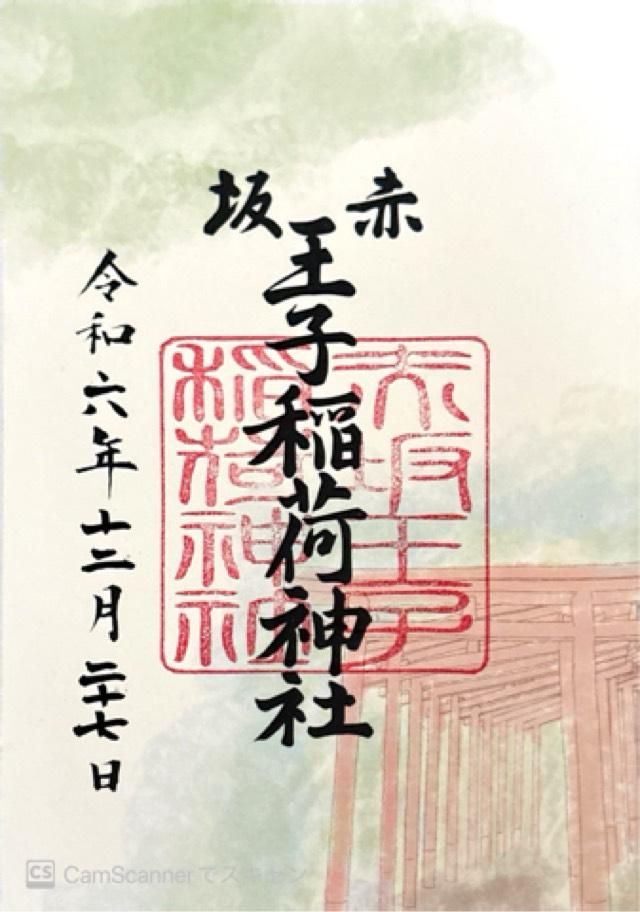 赤坂
王子稲荷神社
令和六年十二月二十七日
赤坂王子
稲荷神社
CS CamScannerでスキャン